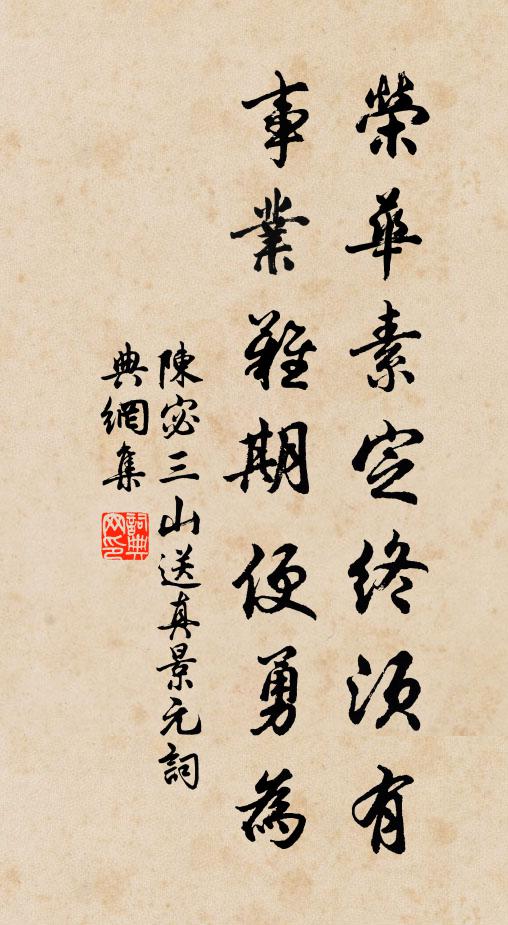 榮華素定終須有
事業難期便勇為
陳宓三山送真景元詞
典網集
詞典
网印